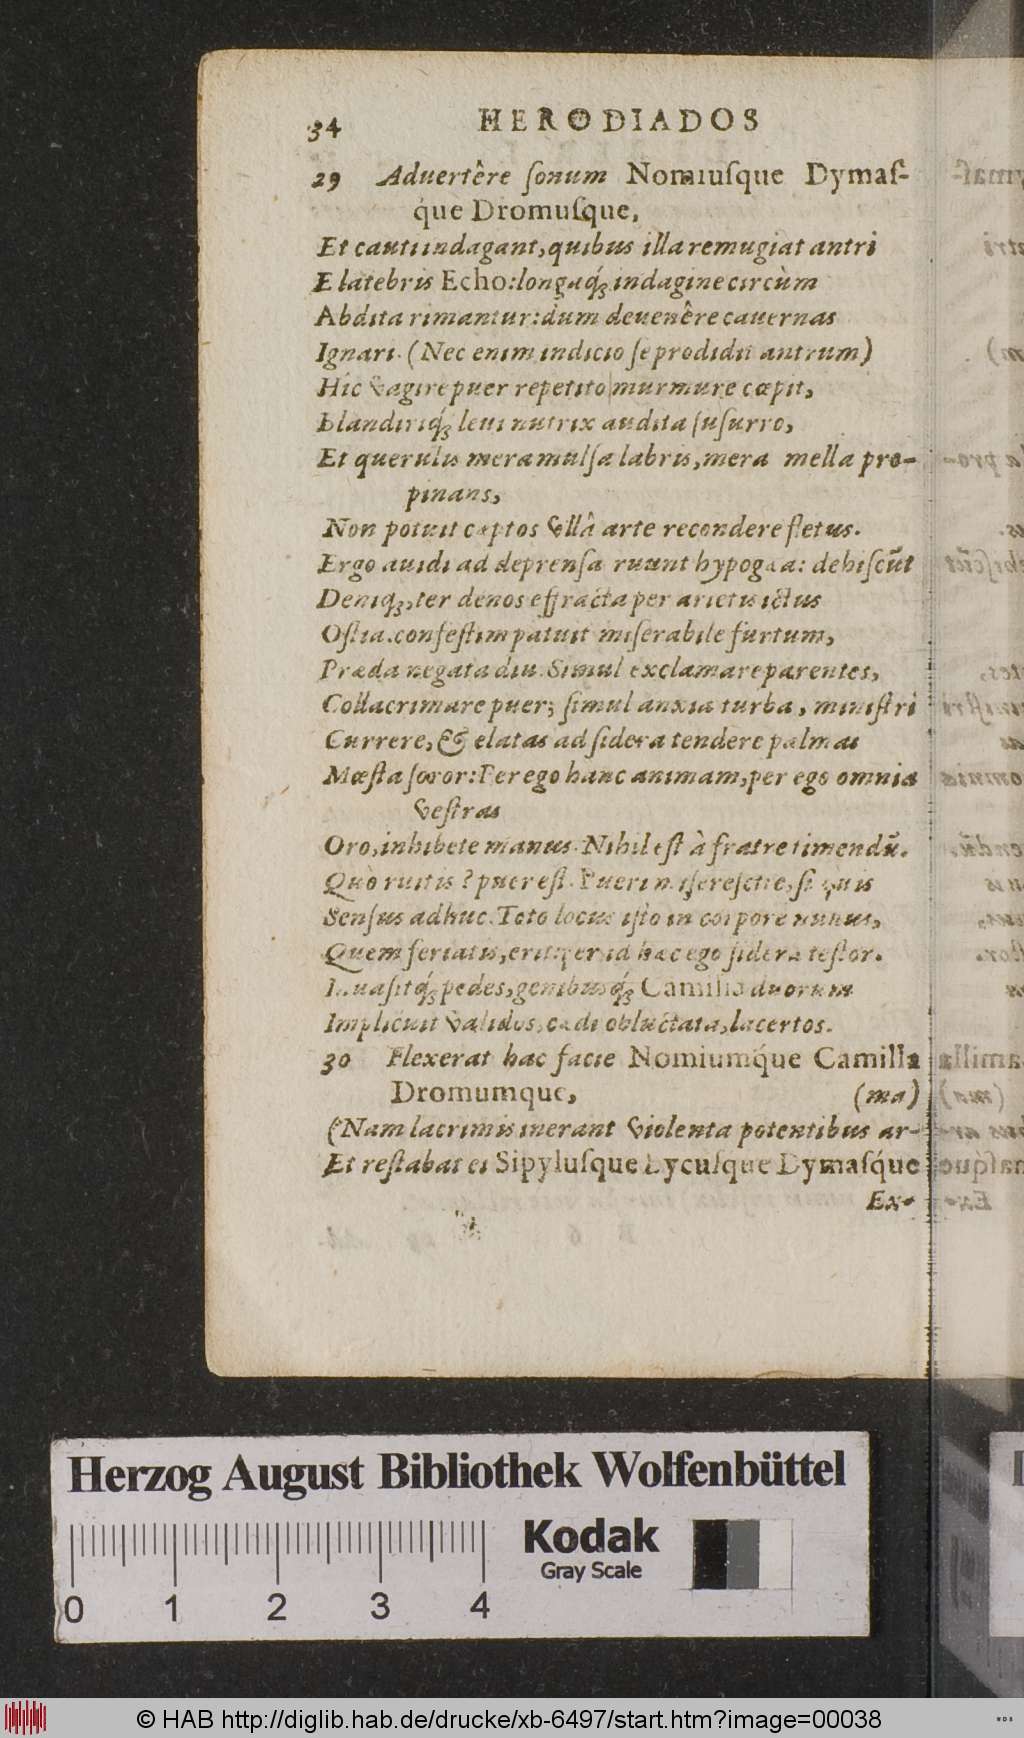 34 HERODIADOS
29 Aduertêre ſonum Nomiuſque Dymaſ-
que Dromuſque,
Et cauti indagant, quibus illa remugiat antri
E latebris Echo: longaq́ꝫ indagine circùm
Abdita rimantur: dum deuenêre cauernas
Ignari. (Nec enim indicio ſe prodidit antrum)
Hic vagire puer repetito murmure cœpit,
Blandiriq́ꝫ leui nutrix audita ſuſurro,
Et querulis mera mulſa labris, mera mella pro-
pinans,
Non potuit cœptos vllâ arte recondere fletus.
Ergo auidi ad deprenſa ruunt hypogæa: dehiſcũt
Deniqꝫ, ter denos effracta per arietis ictus
Oſtia. confeſtim patuit miſerabile furtum,
Præda negata diu. Simul exclamare parentes,
Collacrimare puer; ſimul anxia turba, miniſtri
Currere, & elatas ad ſidera tendere palmas
Mœſta ſoror: Per ego hanc animam, per ego omnia
veſtras
Oro, inhibete manus. Nihil eſt à fratre timendũ.
Quò ruitis? puer eſt. Pueri miſereſcite, ſi quis
Senſus adhuc. Toto locus iſto in corpore nullus,
Quem feriatis, erit: per id hæc ego ſidera teſtor.
Inuaſitq́ꝫ pedes, genibuſq́ꝫ Camilla duorum
Implicuit validos, cædi obluctata, lacertos.
30 Flexerat hac facie Nomiumq́ue Camilla
Dromumque, (ma)
(Nam lacrimis inerant violenta potentibus ar-
Et reſtabat ei Sipyluſque Lycuſque Dymaſq́ue
Ex-
Herzog August Bibliothek Wolfenbüttel
Kodak
Gray Scale
0 1 2 3 4
© HAB http://diglib.hab.de/drucke/xb-6497/start.htm?image=00038